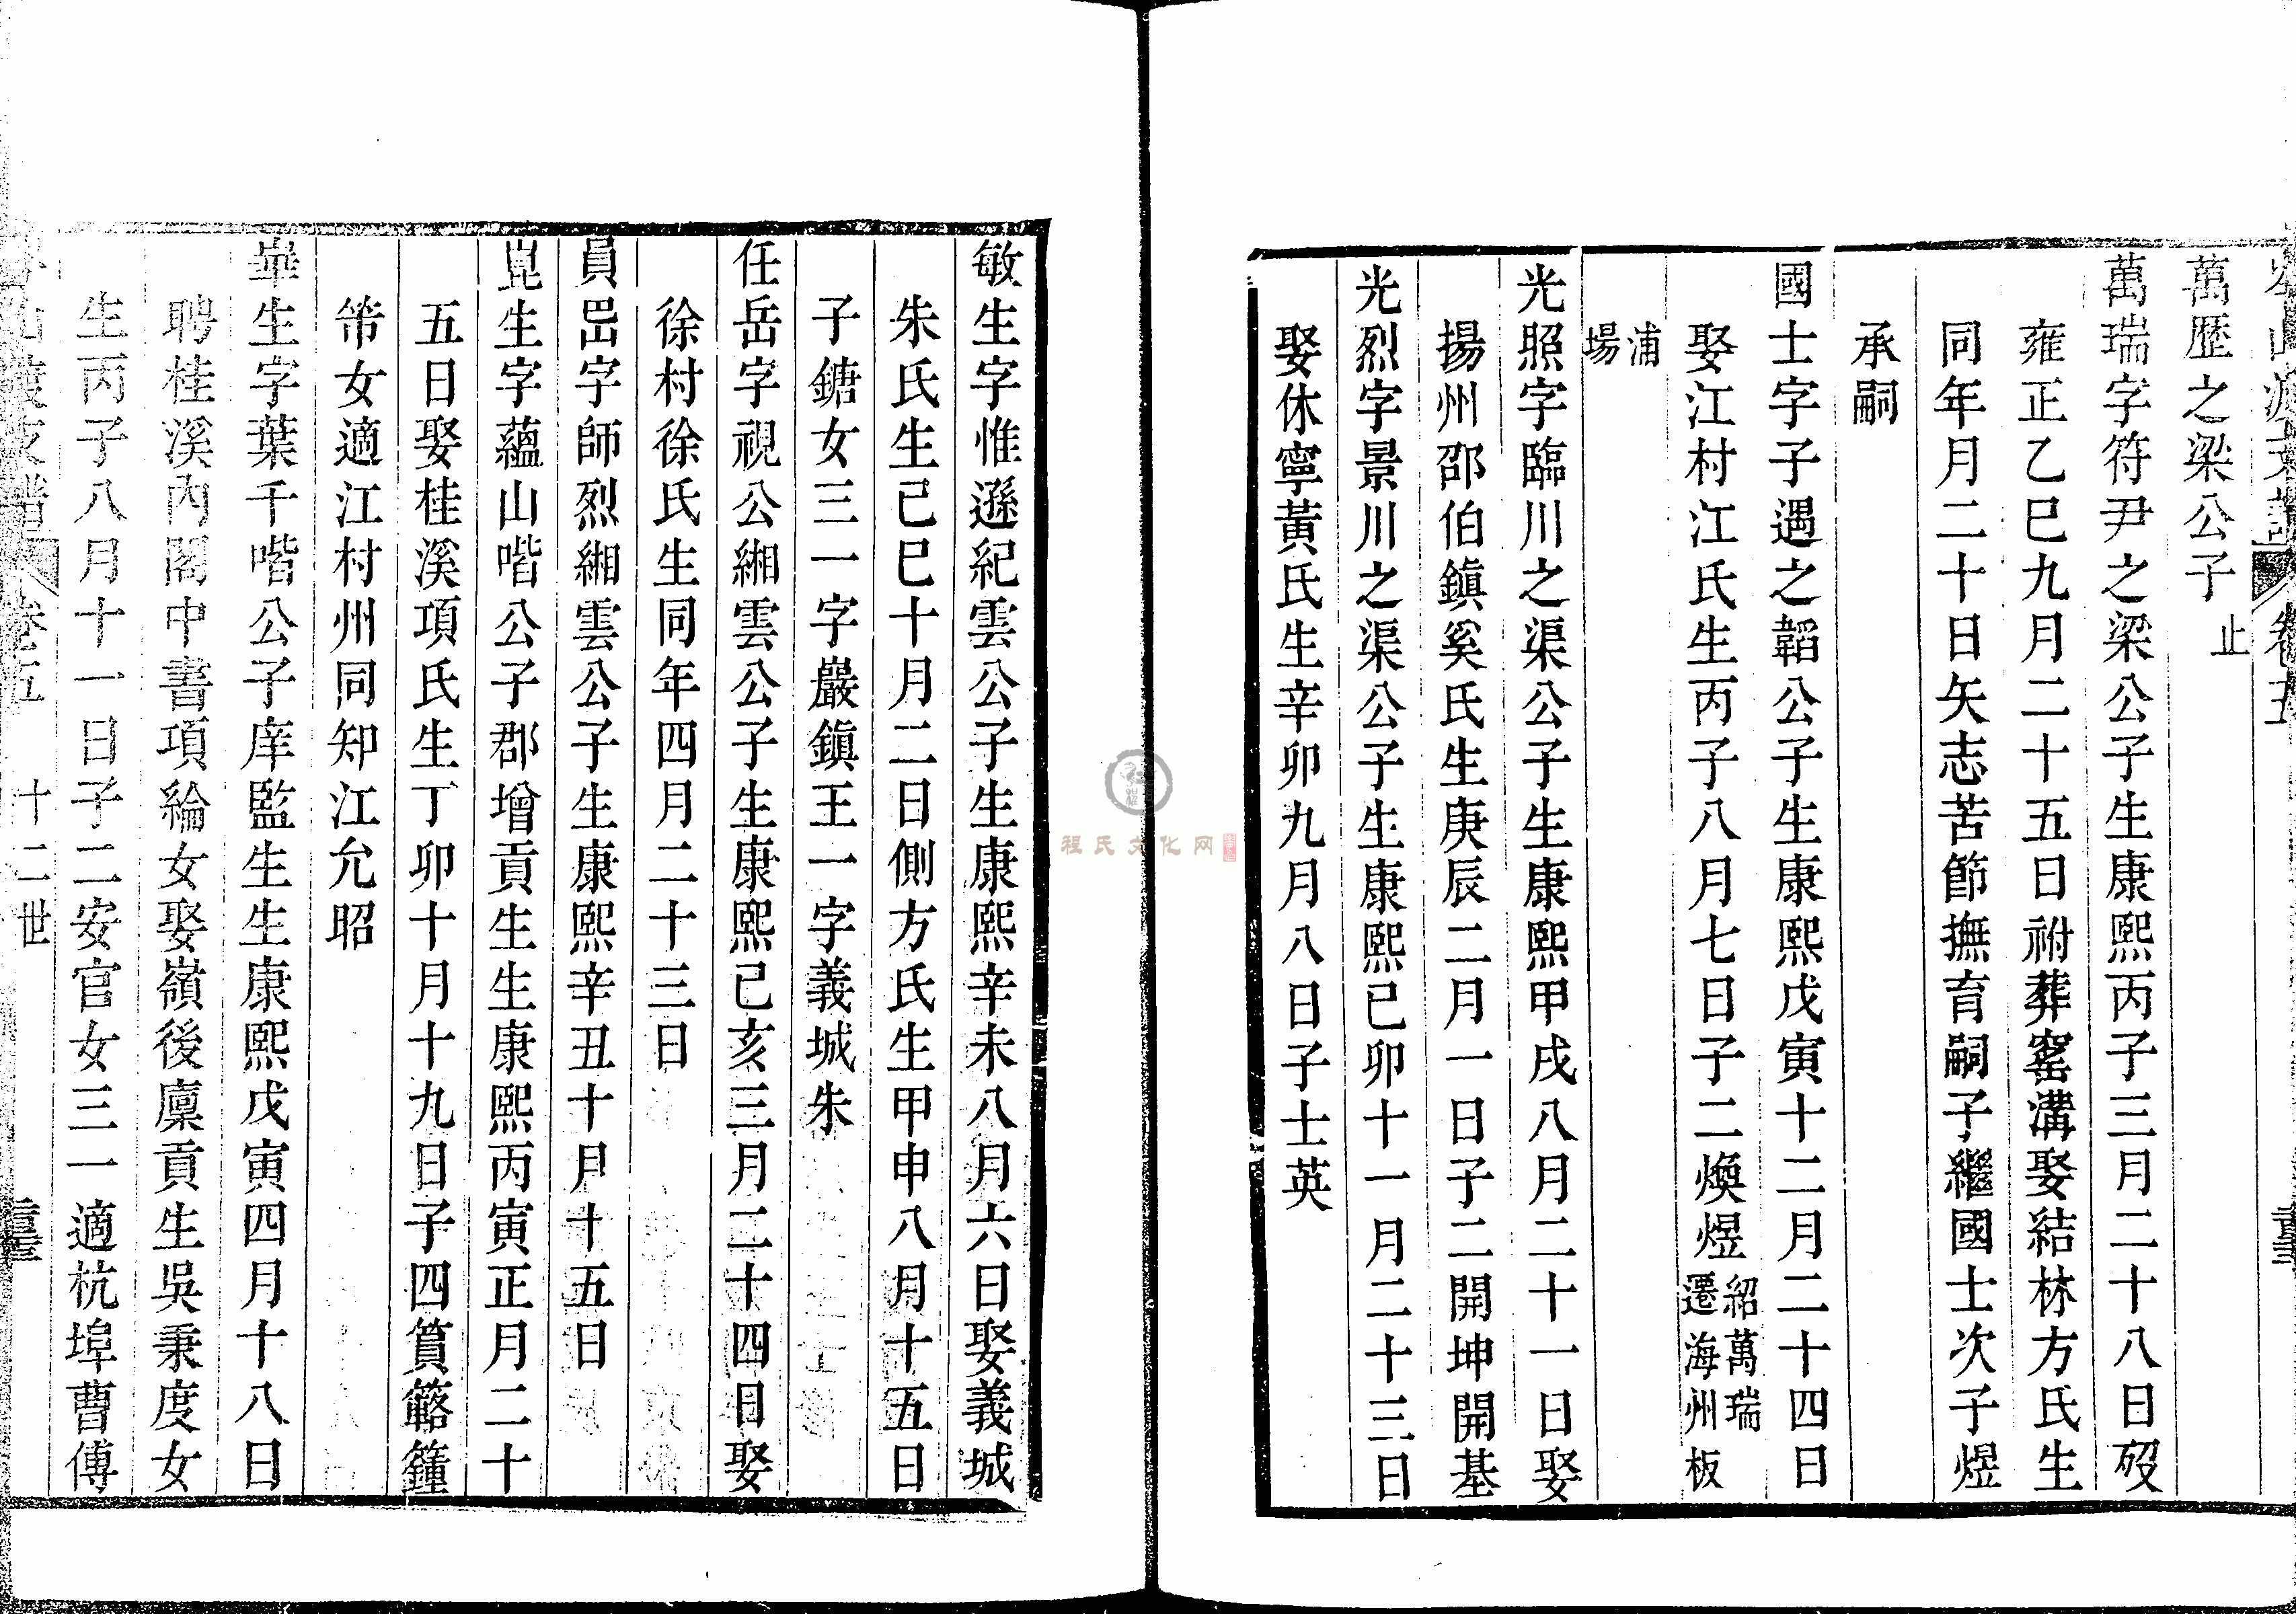 卷五
萬歷之梁公子 止
萬瑞字符尹之梁公子生康熙丙子三月二十八日歿
雍正乙巳九月二十五日祔葬窰溝娶結林方氏生
同年月二十日矢志苦節撫育嗣子繼國士次子煜
承嗣
國士字子遇之韜公子生康熙戊寅十二月二十四日
娶江村江氏生丙子八月七日子二煥煜 紹萬瑞
遷海州板
浦
場
光照字臨川之渠公子生康熙甲戌八月二十一日娶
揚州邵伯鎮奚氏生庚辰二月一日子二開坤開基
光烈字景川之渠公子生康熙己卯十一月二十三日
娶休寧黃氏生辛卯九月八日子士英
敏生字惟遜紀雲公子生康熙辛未八月六日娶義城
朱氏生己巳十月二日側方氏生甲申八月十五日
子鎕女三一字巖鎮王一字義城朱
任岳字視公緗雲公子生康熙己亥三月二十四日娶
徐村徐氏生同年四月二十三日
員嵒字師烈緗雲公子生康熙辛丑十月十五日
崑生字蘊山喈公子郡增貢生生康熙丙寅正月二十
五日娶桂溪項氏生丁卯十月十九日子四篔簵鍾
筞女適江村州同知江允昭
崋生字葉千喈公子庠監生生康熙戊寅四月十八日
聘桂溪內閣中書項綸女娶嶺後廩貢生吳秉度女
生丙子八月十一日子二安官女三一適杭埠曹傅
卷五 十二世
程氏文化网